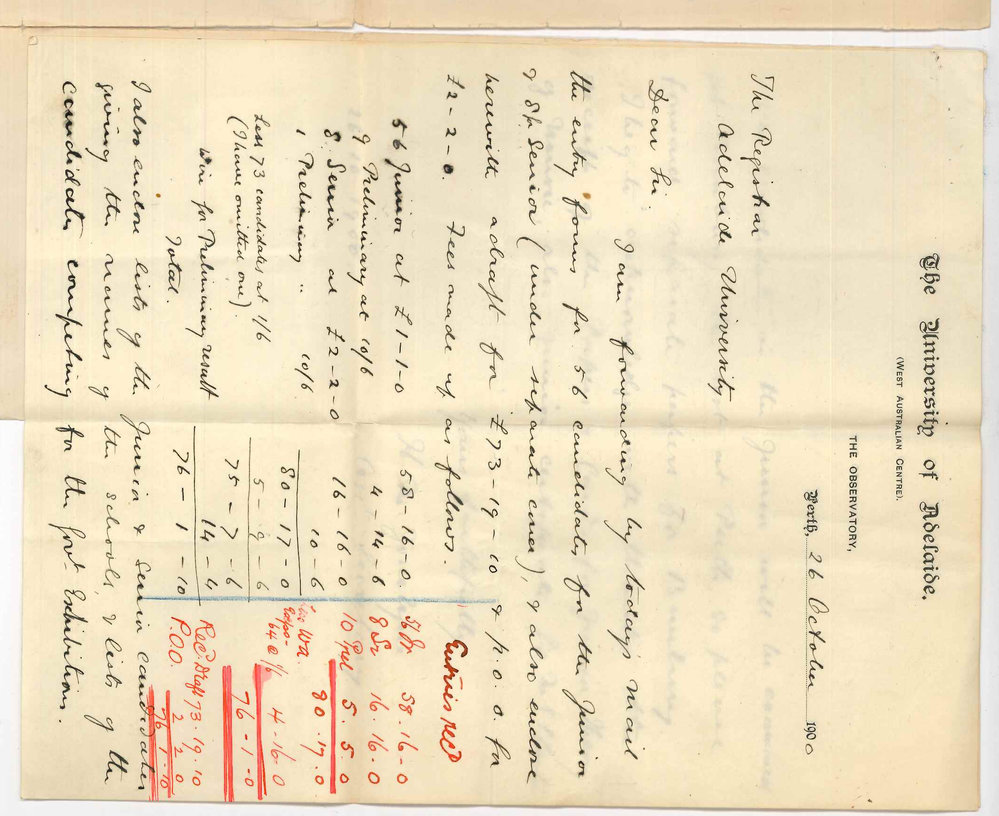 The University of Adelaide.
(WEST AUSTRALIAN CENTRE).
THE OBSERVATORY,
Perth, 26 October 1900
The Registrar
Adelaide University
Dear Sir.
I am forwarding by todays mail
the entry forms for 56 candidates for the Junior
& 8 Senior (under separate cover), & also enclose
herewith a draft for £73-19-10 & p.o.o. for
£2-2-0. Fees made up as follows.
56 Junior at £1-1-0 58-16-0
9 Preliminary at 10/6 4-14-6
8 Senior at £2-2-0 16-16-0
1 Preliminary .. 10/6 10-6
80-17-0
Less 73 candidates at 1/6 5-9-6
(I have omitted one). 75-7-6
Wire for Preliminary result 14-4
Total. 76-1-10
I also enclose lists of the Junior & Senior candidates
giving the names of the schools, & lists of the
candidates competing for the Govt. Exhibitions.
Entries Rec'd
56 Jr 58.16-0
8 Sr 16.16.0
10 Prel 5.5.0
80.17.0
W.A.
64 @ 1/6 4-16-0
76-1-0
Rec. Draft 73.19.10
P.O.O. 2 2 0
76-1-10